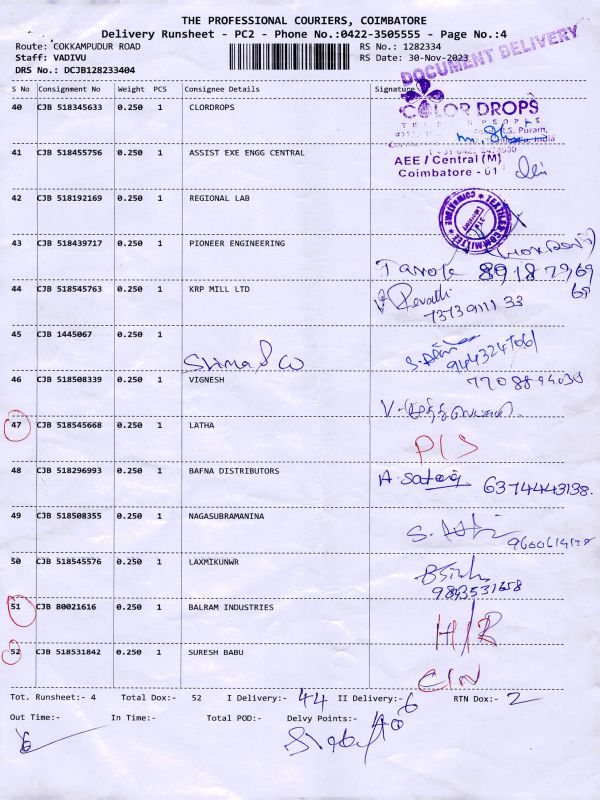 THE PROFESSIONAL COURIERS, COIMBATORE
Delivery Runsheet - PC2 - Phone No.:0422-3505555 - Page No.:4
Route: COKKAMPUDUR ROAD RS No.: 1282334
Staff: VADIVU RS Date: 30-Nov-2023
DRS No.: DCJB128233404
DOCUMENT DELIVERY
S No Consignment No Weight PCS Consignee Details Signature
40 CJB 518345633 0.250 1 CLORDROPS
COLOR DROPS
R.S. Puram,
41 CJB 518455756 0.250 1 ASSIST EXE ENGG CENTRAL
AEE / Central (M)
Coimbatore - 01
42 CJB 518192169 0.250 1 REGIONAL LAB
TEXTILES COMMITTEE
COIMBATORE
43 CJB 518439717 0.250 1 PIONEER ENGINEERING
44 CJB 518545763 0.250 1 KRP MILL LTD
Revathi
73739111 33
45 CJB 1445067 0.250 1
46 CJB 518508339 0.250 1 VIGNESH
47 CJB 518545668 0.250 1 LATHA
P/S
48 CJB 518296993 0.250 1 BAFNA DISTRIBUTORS
6374443138.
49 CJB 518508355 0.250 1 NAGASUBRAMANINA
50 CJB 518545576 0.250 1 LAXMIKUNWR
51 CJB 80021616 0.250 1 BALRAM INDUSTRIES
H/R
52 CJB 518531842 0.250 1 SURESH BABU
C/N
Tot. Runsheet:- 4 Total Dox:- 52 I Delivery:- 44 II Delivery:- 6 RTN Dox:- 2
Out Time:- In Time:- Total POD:- Delvy Points:-